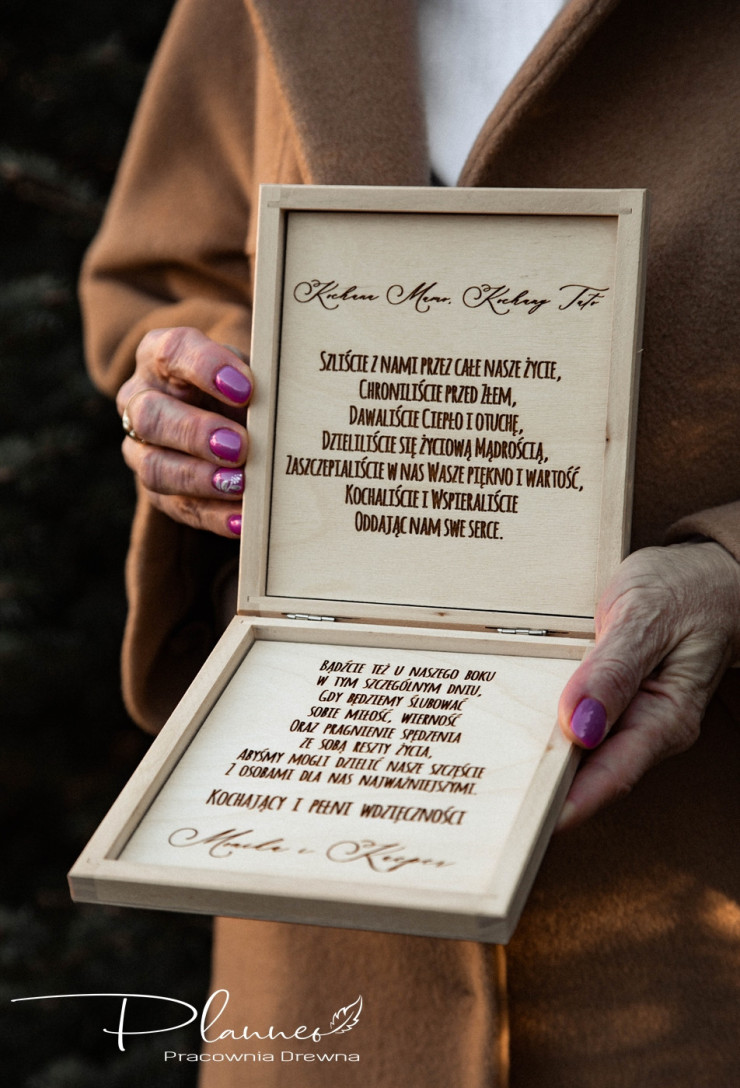 Kochana Mamo, Kochany Tato
SZLIŚCIE Z NAMI PRZEZ CAŁE NASZE ŻYCIE,
CHRONILIŚCIE PRZED ZŁEM,
DAWALIŚCIE CIEPŁO I OTUCHĘ,
DZIELILIŚCIE SIĘ ŻYCIOWĄ MĄDROŚCIĄ,
ZASZCZEPIALIŚCIE W NAS WASZE PIĘKNO I WARTOŚĆ,
KOCHALIŚCIE I WSPIERALIŚCIE
ODDAJĄC NAM SWE SERCE.
BĄDŹCIE TEŻ U NASZEGO BOKU
W TYM SZCZEGÓLNYM DNIU,
GDY BĘDZIEMY ŚLUBOWAĆ
SOBIE MIŁOŚĆ, WIERNOŚĆ
ORAZ PRAGNIENIE SPĘDZENIA
ZE SOBĄ RESZTY ŻYCIA,
ABYŚMY MOGLI DZIELIĆ NASZE SZCZĘŚCIE
Z OSOBAMI DLA NAS NAJWAŻNIEJSZYMI.
KOCHAJĄCY I PEŁNI WDZIĘCZNOŚCI
Monika i Kacper
Planneo
Pracownia Drewna